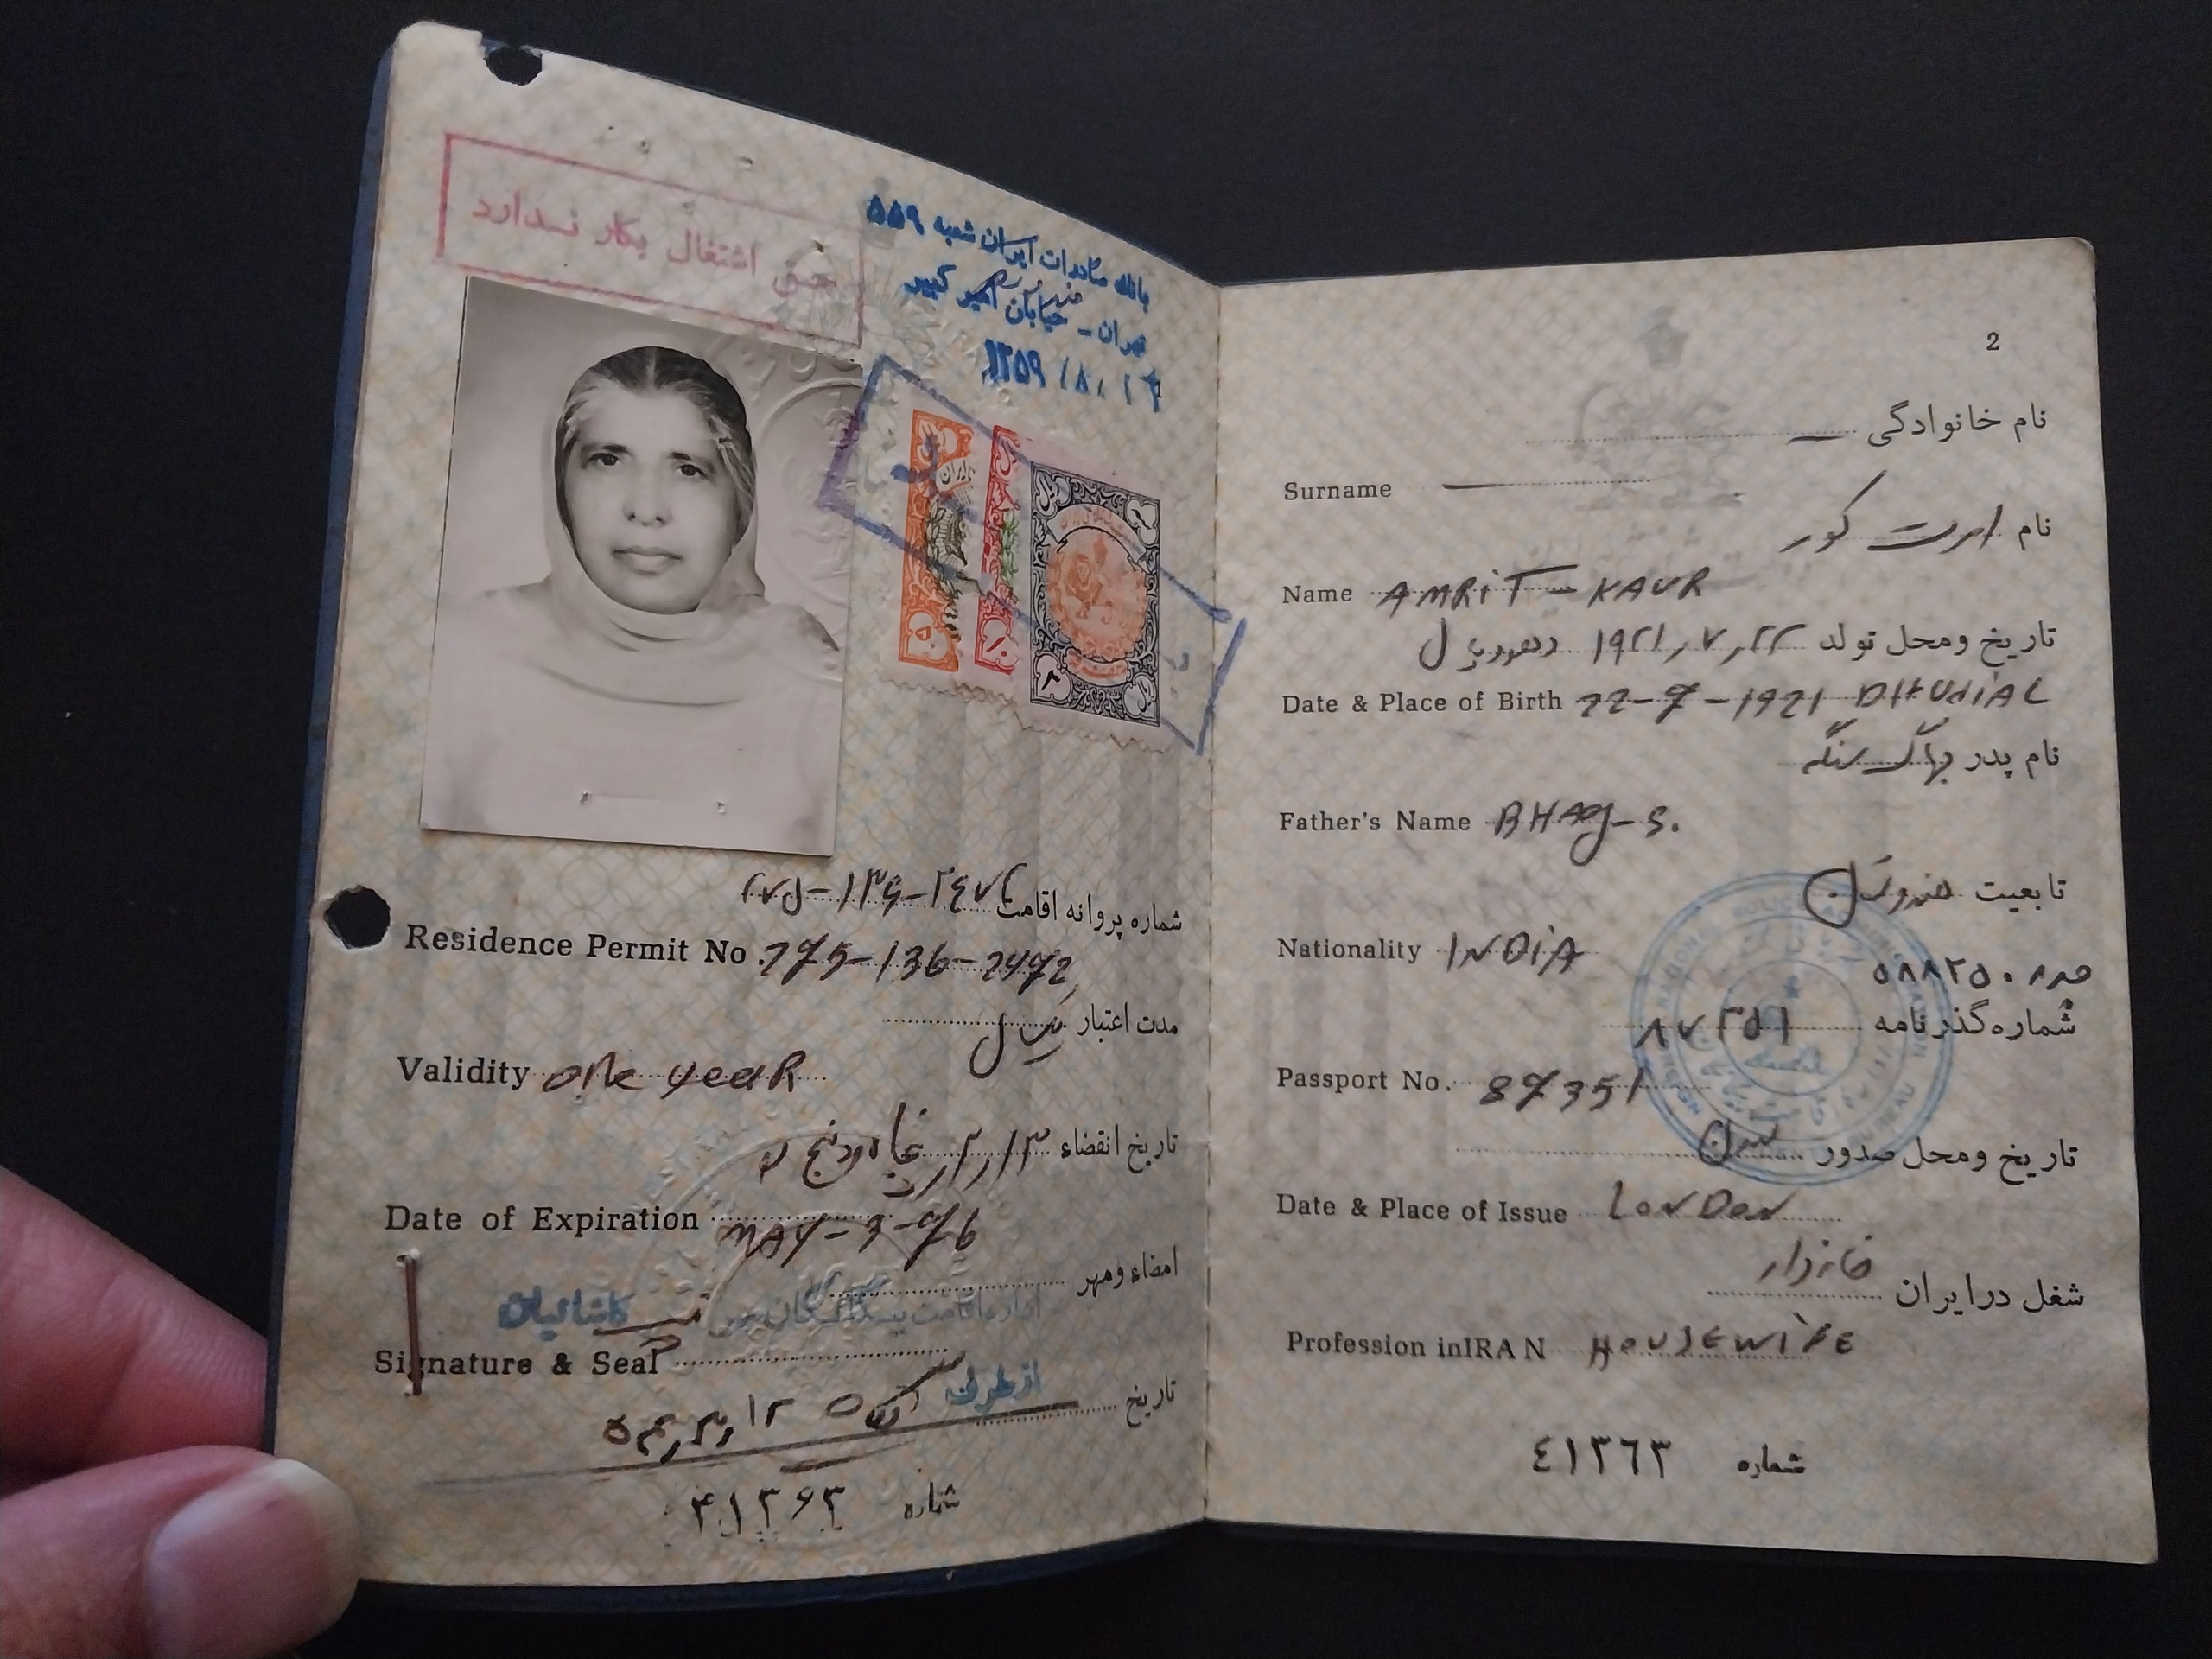 حق اشتغال بکار ندارد
بانک صادرات ایران شعبه ۵۵۹
تهران - خیابان امیر کبیر
ایران
شماره پروانه اقامت ۲۷۵-۱۳۶-۲٤۷۲
Residence Permit No. 275-136-2472
مدت اعتبار یکسال
Validity one year
تاریخ انقضاء
Date of Expiration MAY-3-76
امضاء ومهر
کاشانیان
Signature & Seal
از طرف
تاریخ ۱۲
شماره ۴۱۳۶۳
2
نام خانوادگی —
Surname —
نام امرت کور
Name AMRIT-KAUR
تاریخ ومحل تولد ۱۹۲۱,۷,۲۲
Date & Place of Birth 22-7-1921 DHUdiAL
نام پدر بهاگ سنگه
Father's Name BHAg-S.
تابعیت هندوستان
Nationality INDiA
۵۸۸۲۵۰
شماره گذرنامه ۸۷۳۵۱
Passport No. 87351
تاریخ ومحل صدور لندن
Date & Place of Issue LonDon
شغل درایران خانه‌دار
Profession inIRAN HOUSEWiFE
شماره ٤١٣٦٣